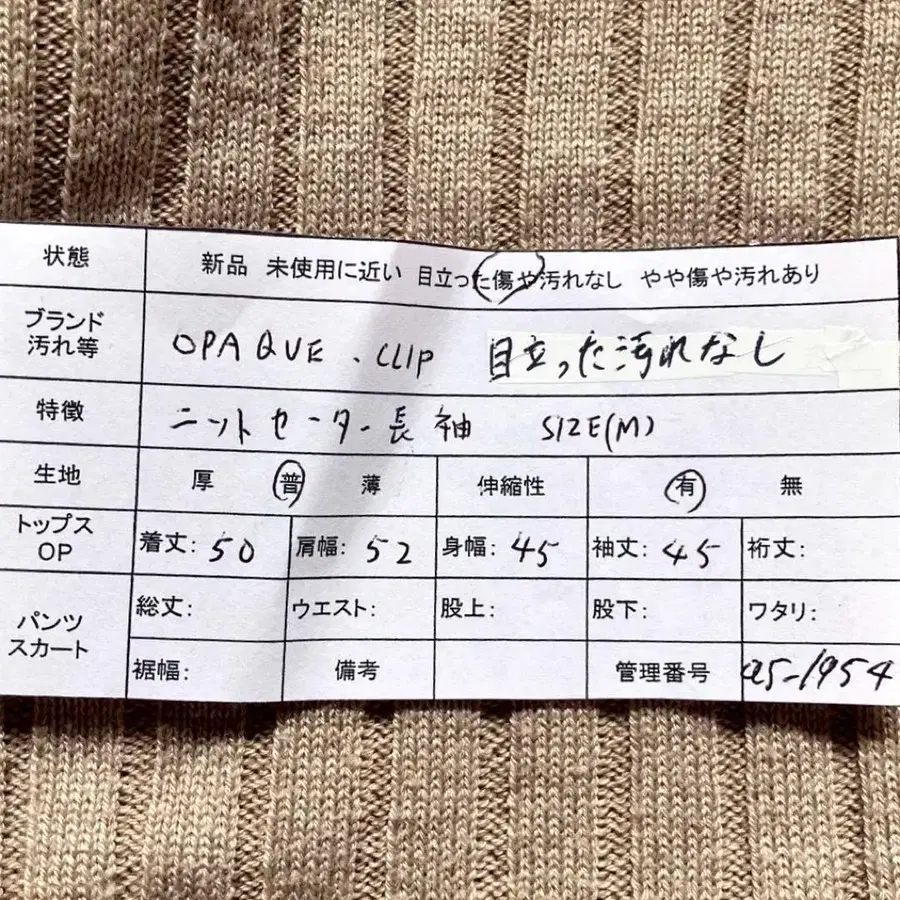 状態 新品 未使用に近い 目立った傷や汚れなし やや傷や汚れあり
ブランド
汚れ等 OPAQUE.CLIP 目立った汚れなし
特徴 ニットセーター長袖 SIZE(M)
生地 厚 普 薄 伸縮性 有 無
トップス
OP 着丈: 50 肩幅: 52 身幅: 45 袖丈: 45 裄丈:
パンツ
スカート 総丈: ウエスト: 股上: 股下: ワタリ:
裾幅: 備考 管理番号 a5-1954